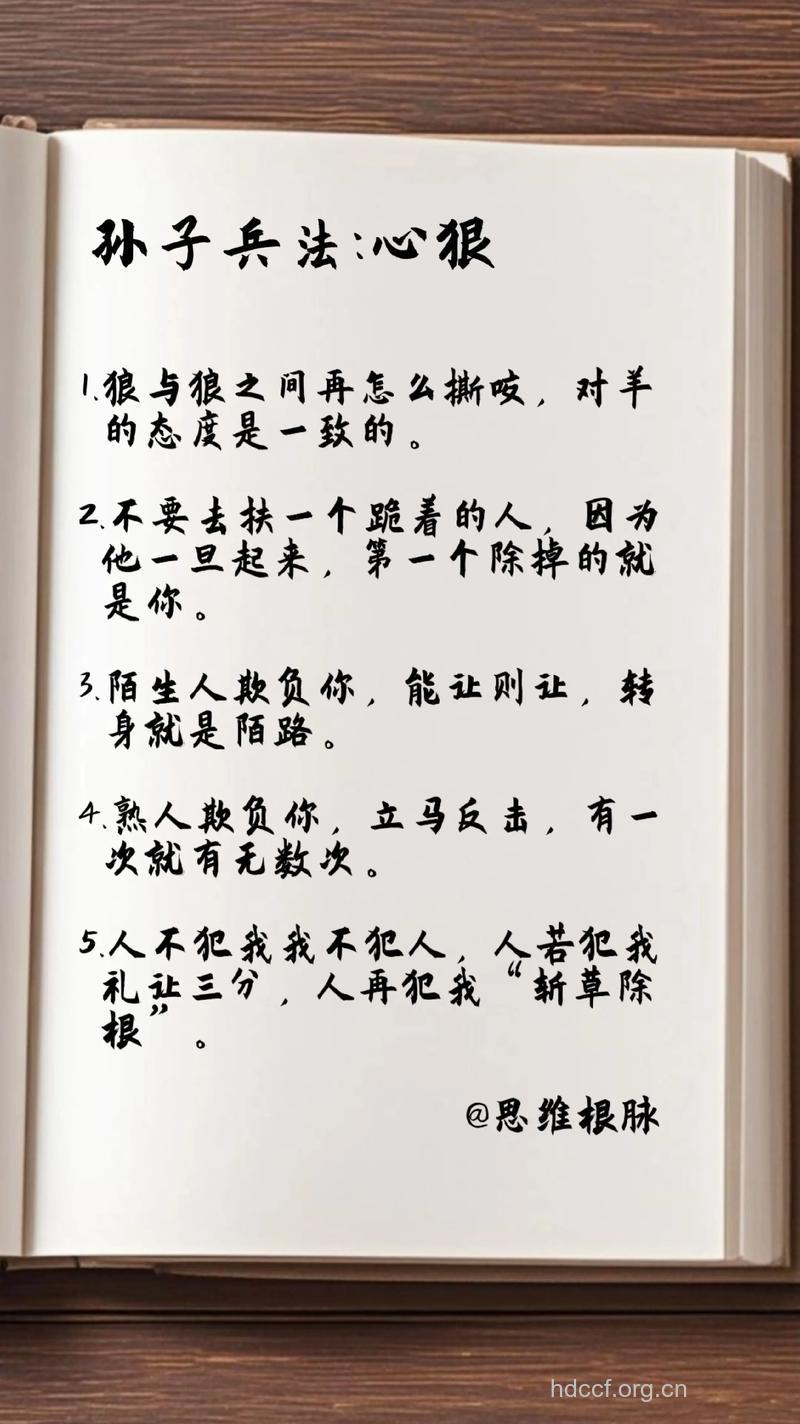 孙子兵法:心狠
1.狼与狼之间再怎么撕咬，对羊
的态度是一致的。
2.不要去扶一个跪着的人，因为
他一旦起来，第一个除掉的就
是你。
3.陌生人欺负你，能让则让，转
身就是陌路。
4.熟人欺负你，立马反击，有一
次就有无数次。
5.人不犯我我不犯人，人若犯我
礼让三分，人再犯我“斩草除
根”。
@思维根脉
hdccf.org.cn